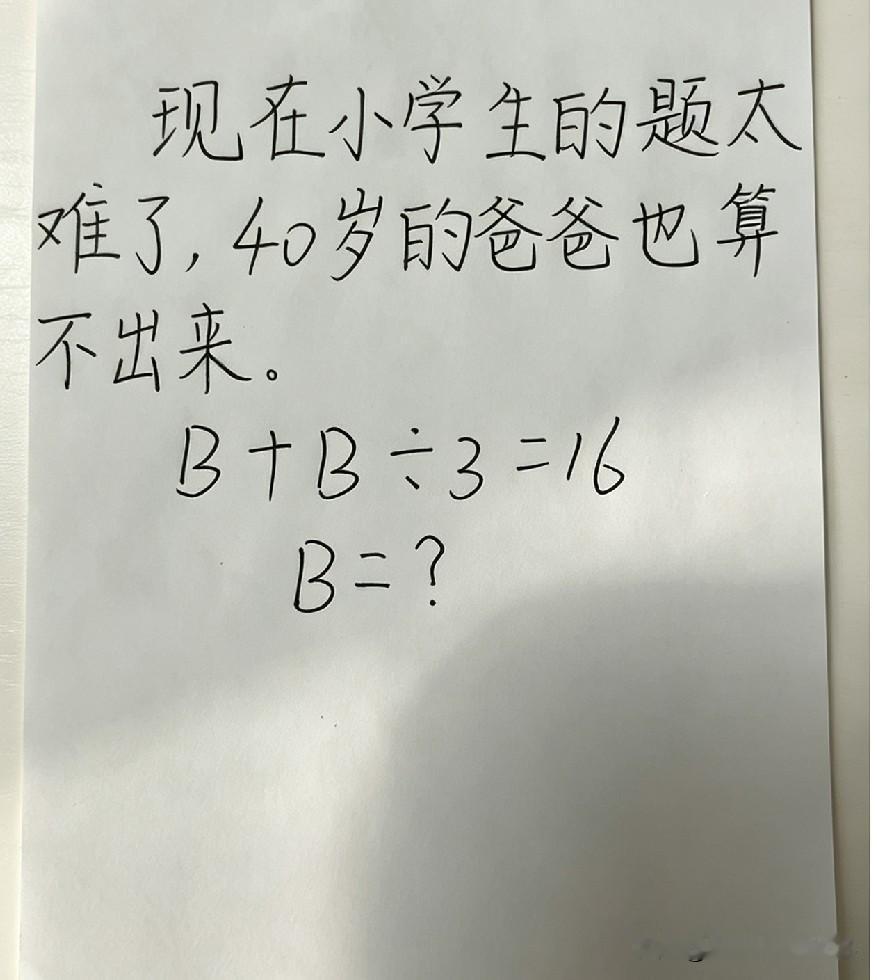 现在小学生的题太
难了,40岁的爸爸也算
不出来。
B+B÷3=16
B=?